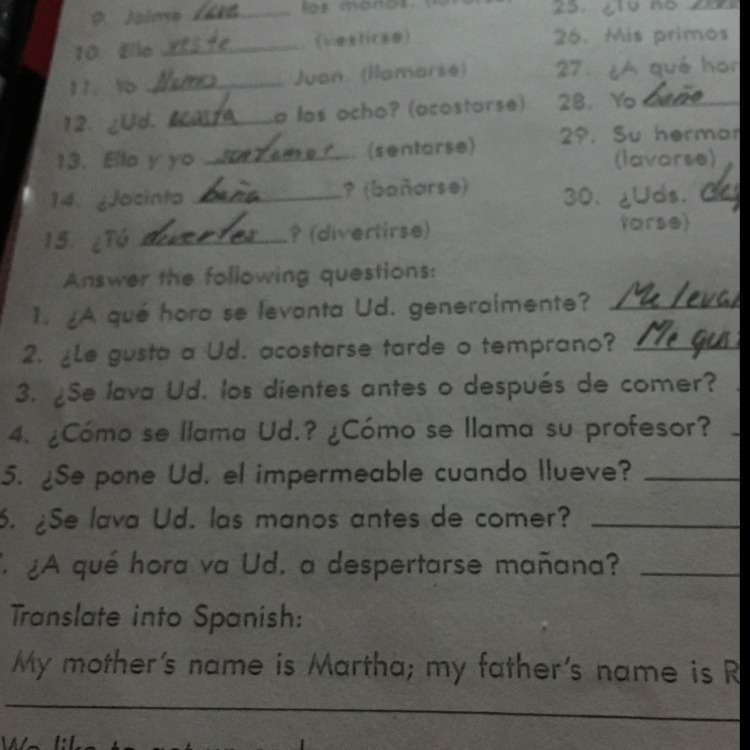 9. Jaime lava los manos.
10. Ella viste (vestirse)
11. Yo llamo Juan. (llamarse)
12. ¿Ud. acosta a las ocho? (acostarse)
13. Ella y yo sentamos (sentarse)
14. ¿Jacinto baña ? (bañarse)
15. ¿Tú divertes ? (divertirse)
25. ¿Tú no
26. Mis primos
27. ¿A qué hor
28. Yo baño
29. Su herman
(lavarse)
30. ¿Uds. des
tarse)
Answer the following questions:
1. ¿A qué hora se levanta Ud. generalmente? Me levan
2. ¿Le gusta a Ud. acostarse tarde o temprano? Me gus
3. ¿Se lava Ud. los dientes antes o después de comer?
4. ¿Cómo se llama Ud.? ¿Cómo se llama su profesor?
5. ¿Se pone Ud. el impermeable cuando llueve?
6. ¿Se lava Ud. las manos antes de comer?
. ¿A qué hora va Ud. a despertarse mañana?
Translate into Spanish:
My mother's name is Martha; my father's name is R
We like to get up